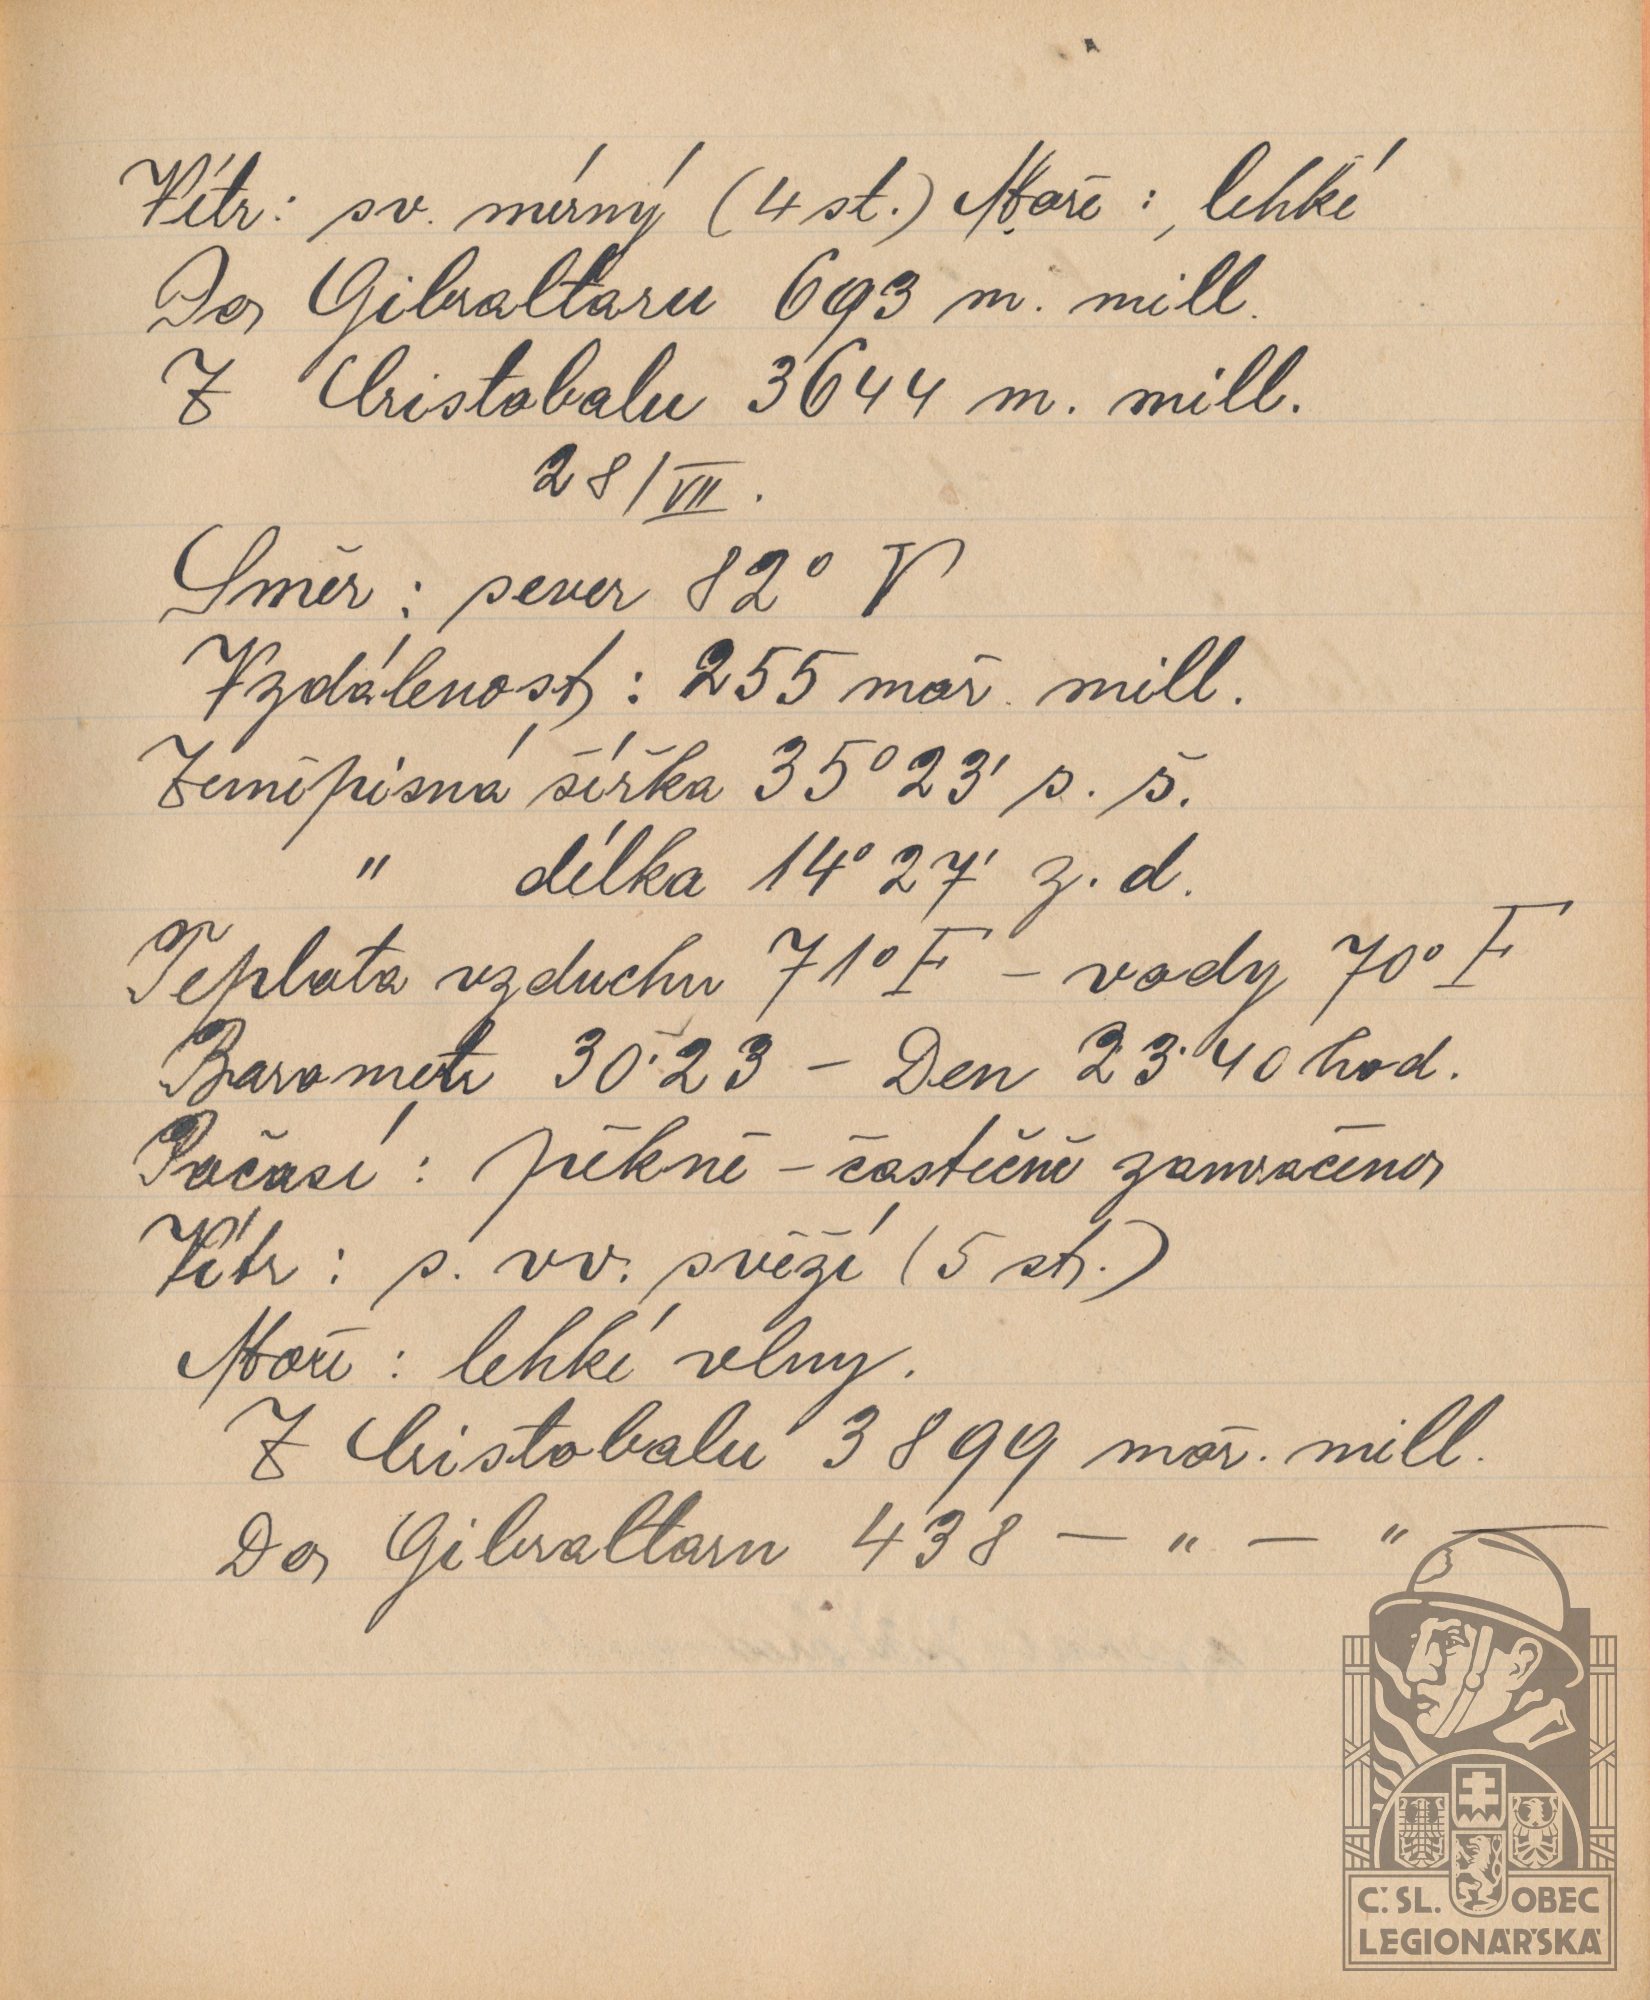 Vítr: sv. mírný (4 st.) Moře: lehké
Do Gibraltaru 693 m. mill.
Z Cristobalu 3644 m. mill.
28/VII.
Směr: sever 82° V
Vzdálenost: 255 moř. mill.
Zeměpisná šířka 35° 23' s. š.
" délka 14° 27' z. d.
Teplota vzduchu 71° F – vody 70° F
Barometr 30·23 – Den 23·40 hod.
Počasí: pěkné – částečně zamračeno
Vítr: s. vv. svěží (5 st.)
Moře: lehké vlny.
Z Cristobalu 3899 moř. mill.
Do Gibraltaru 438 — " — " —
Č. SL. OBEC
LEGIONÁŘSKÁ